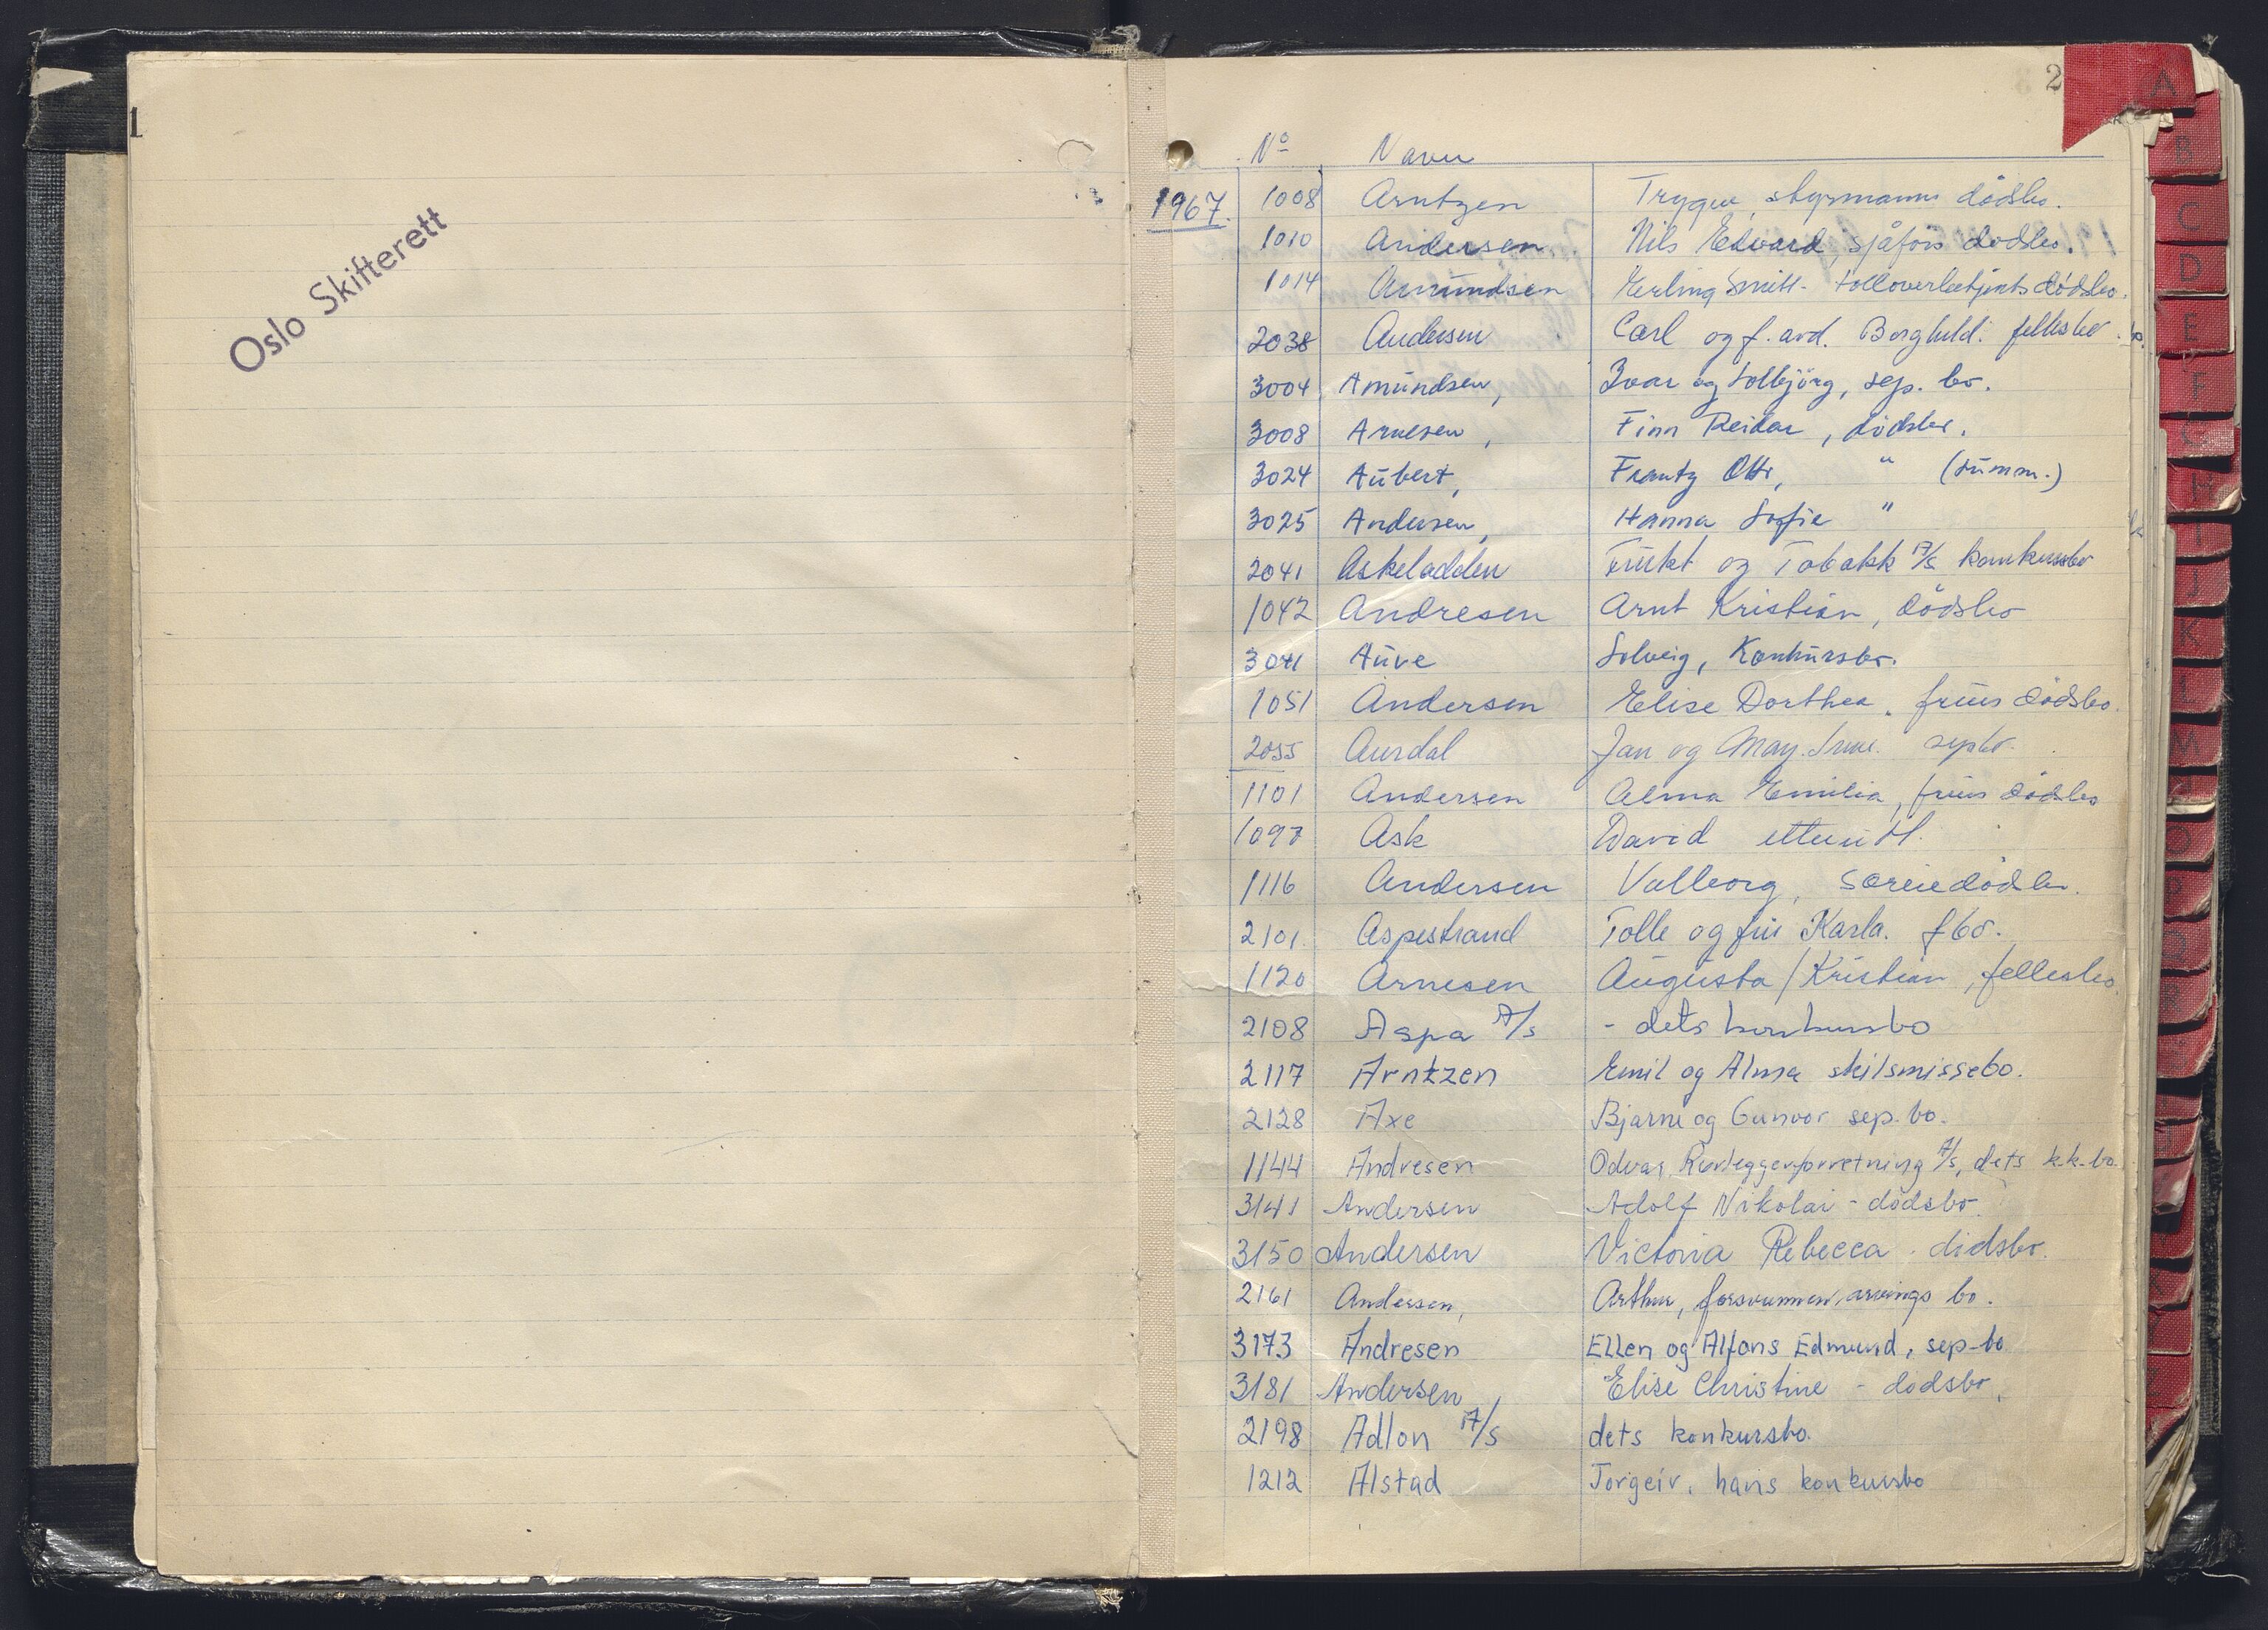 1
Oslo Skifterett
2
A
B
C
D
E
F
H
I
J
K
L
M
O
P
Q
R
Nº Navn
1967. 1008 Arntzen Trygve, styrmanns dödsbo.
1010 Andersen Nils Edvard, sjåførs dödsbo.
1014 Amundsen Erling Smith- tolloverbetjents dödsbo.
2038 Andersen Carl og f. avd. Borghild. fellesbo
3004 Amundsen, Ivar og Solbjörg, sep. bo.
3008 Arnesen, Finn Reidar, dödsbo.
3024 Aubert, Frantz Otto, " (summ.)
3025 Andersen, Hanna Sofie "
2041 Askeladden Frukt og Tobakk A/S konkursbo
1042 Andresen Arnt Kristian, dödsbo
3041 Auve Solveig, Konkursbo.
1051 Andersen Elise Dorthea, frues dödsbo.
2055 Aurdal Jan og May. sepbo.
1101 Andersen Alma Emilia, frues dödsbo
1097 Ask David
1116 Andersen Valborg, særeiedödsbo.
2101 Aspestrand Tolle og fru Karla. fbo.
1120 Arnesen Augusta / Kristian, fellesbo.
2108 Aspa A/S - dets konkursbo
2117 Arntzen Emil og Alma skilsmissebo.
2128 Axe Bjarne og Gunvor sep. bo.
1144 Andresen Odvar, Rørleggerforretning A/S, dets k.k. bo.
3141 Andersen Adolf Nikolai - dödsbo.
3150 Andersen Victoria Rebecca - dödsbo.
2161 Andersen, Arthur, forsvunnen arvings bo.
3173 Andresen Ellen og Alfons Edmund, sep-bo
3181 Andersen Elise Christine - dödsbo.
2198 Adlon A/S dets konkursbo.
1212 Alstad Torgeir, hans konkursbo